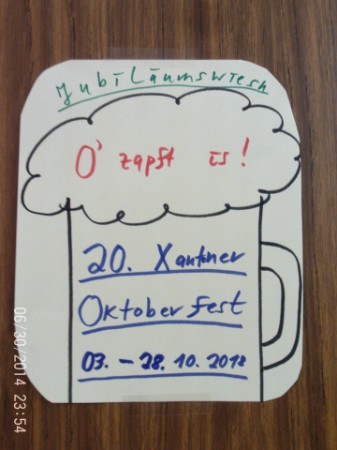 Jubiläumswiesn
O' zapft is!
20. Xantner
Oktoberfest
03. - 28. 10. 2018
06/30/2014 23:54